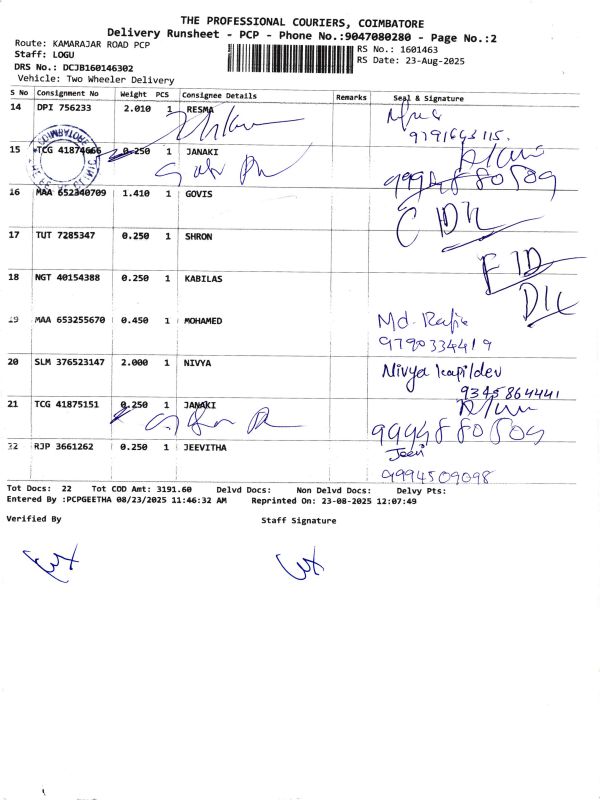 THE PROFESSIONAL COURIERS, COIMBATORE
Delivery Runsheet - PCP - Phone No.:9047080280 - Page No.:2
Route: KAMARAJAR ROAD PCP
RS No.: 1601463
Staff: LOGU
RS Date: 23-Aug-2025
DRS No.: DCJB160146302
Vehicle: Two Wheeler Delivery
S No Consignment No Weight PCS Consignee Details Remarks Seal & Signature
14 DPI 756233 2.010 1 RESMA
9791643115.
15 TCG 41874666 0.250 1 JANAKI
COIMBATORE
9994880509
16 MAA 652340709 1.410 1 GOVIS
17 TUT 7285347 0.250 1 SHRON
18 NGT 40154388 0.250 1 KABILAS
19 MAA 653255670 0.450 1 MOHAMED Md. Rafik
9790334419
20 SLM 376523147 2.000 1 NIVYA Nivya Kapildev
9345864441
21 TCG 41875151 0.250 1 JANAKI
9994880509
22 RJP 3661262 0.250 1 JEEVITHA Jeevi
9994509098
Tot Docs: 22 Tot COD Amt: 3191.60 Delvd Docs: Non Delvd Docs: Delvy Pts:
Entered By :PCPGEETHA 08/23/2025 11:46:32 AM Reprinted On: 23-08-2025 12:07:49
Verified By Staff Signature